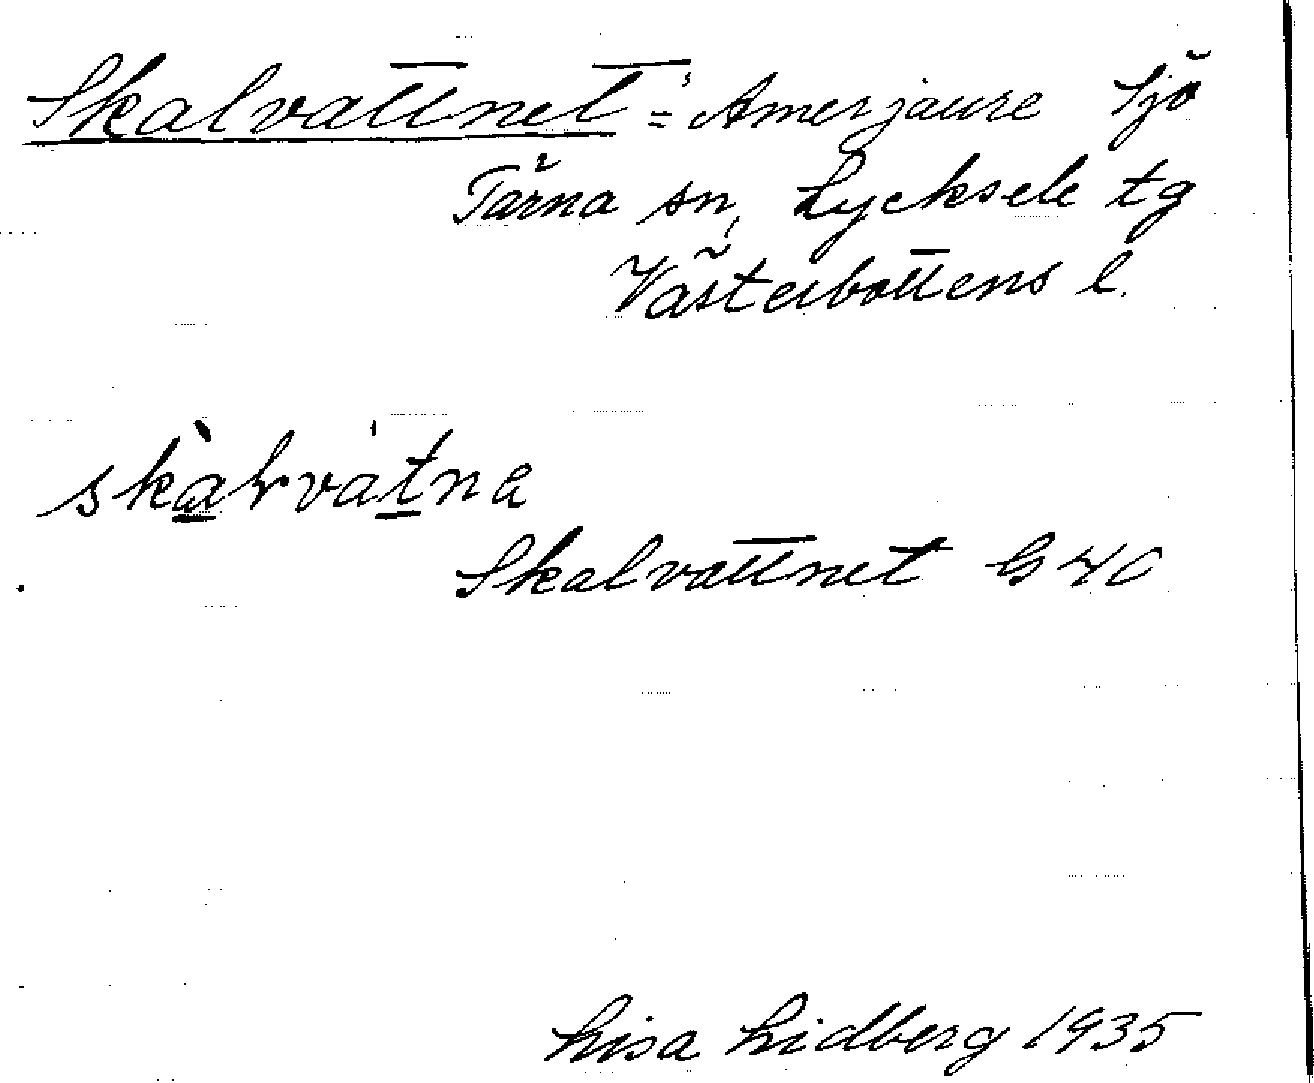 Skalvattnet = Amerjaure Sjö
Tärna sn, Lycksele tg
Västerbottens l.
skàlvátna
Skalvattnet G40
Lisa Lidberg 1935